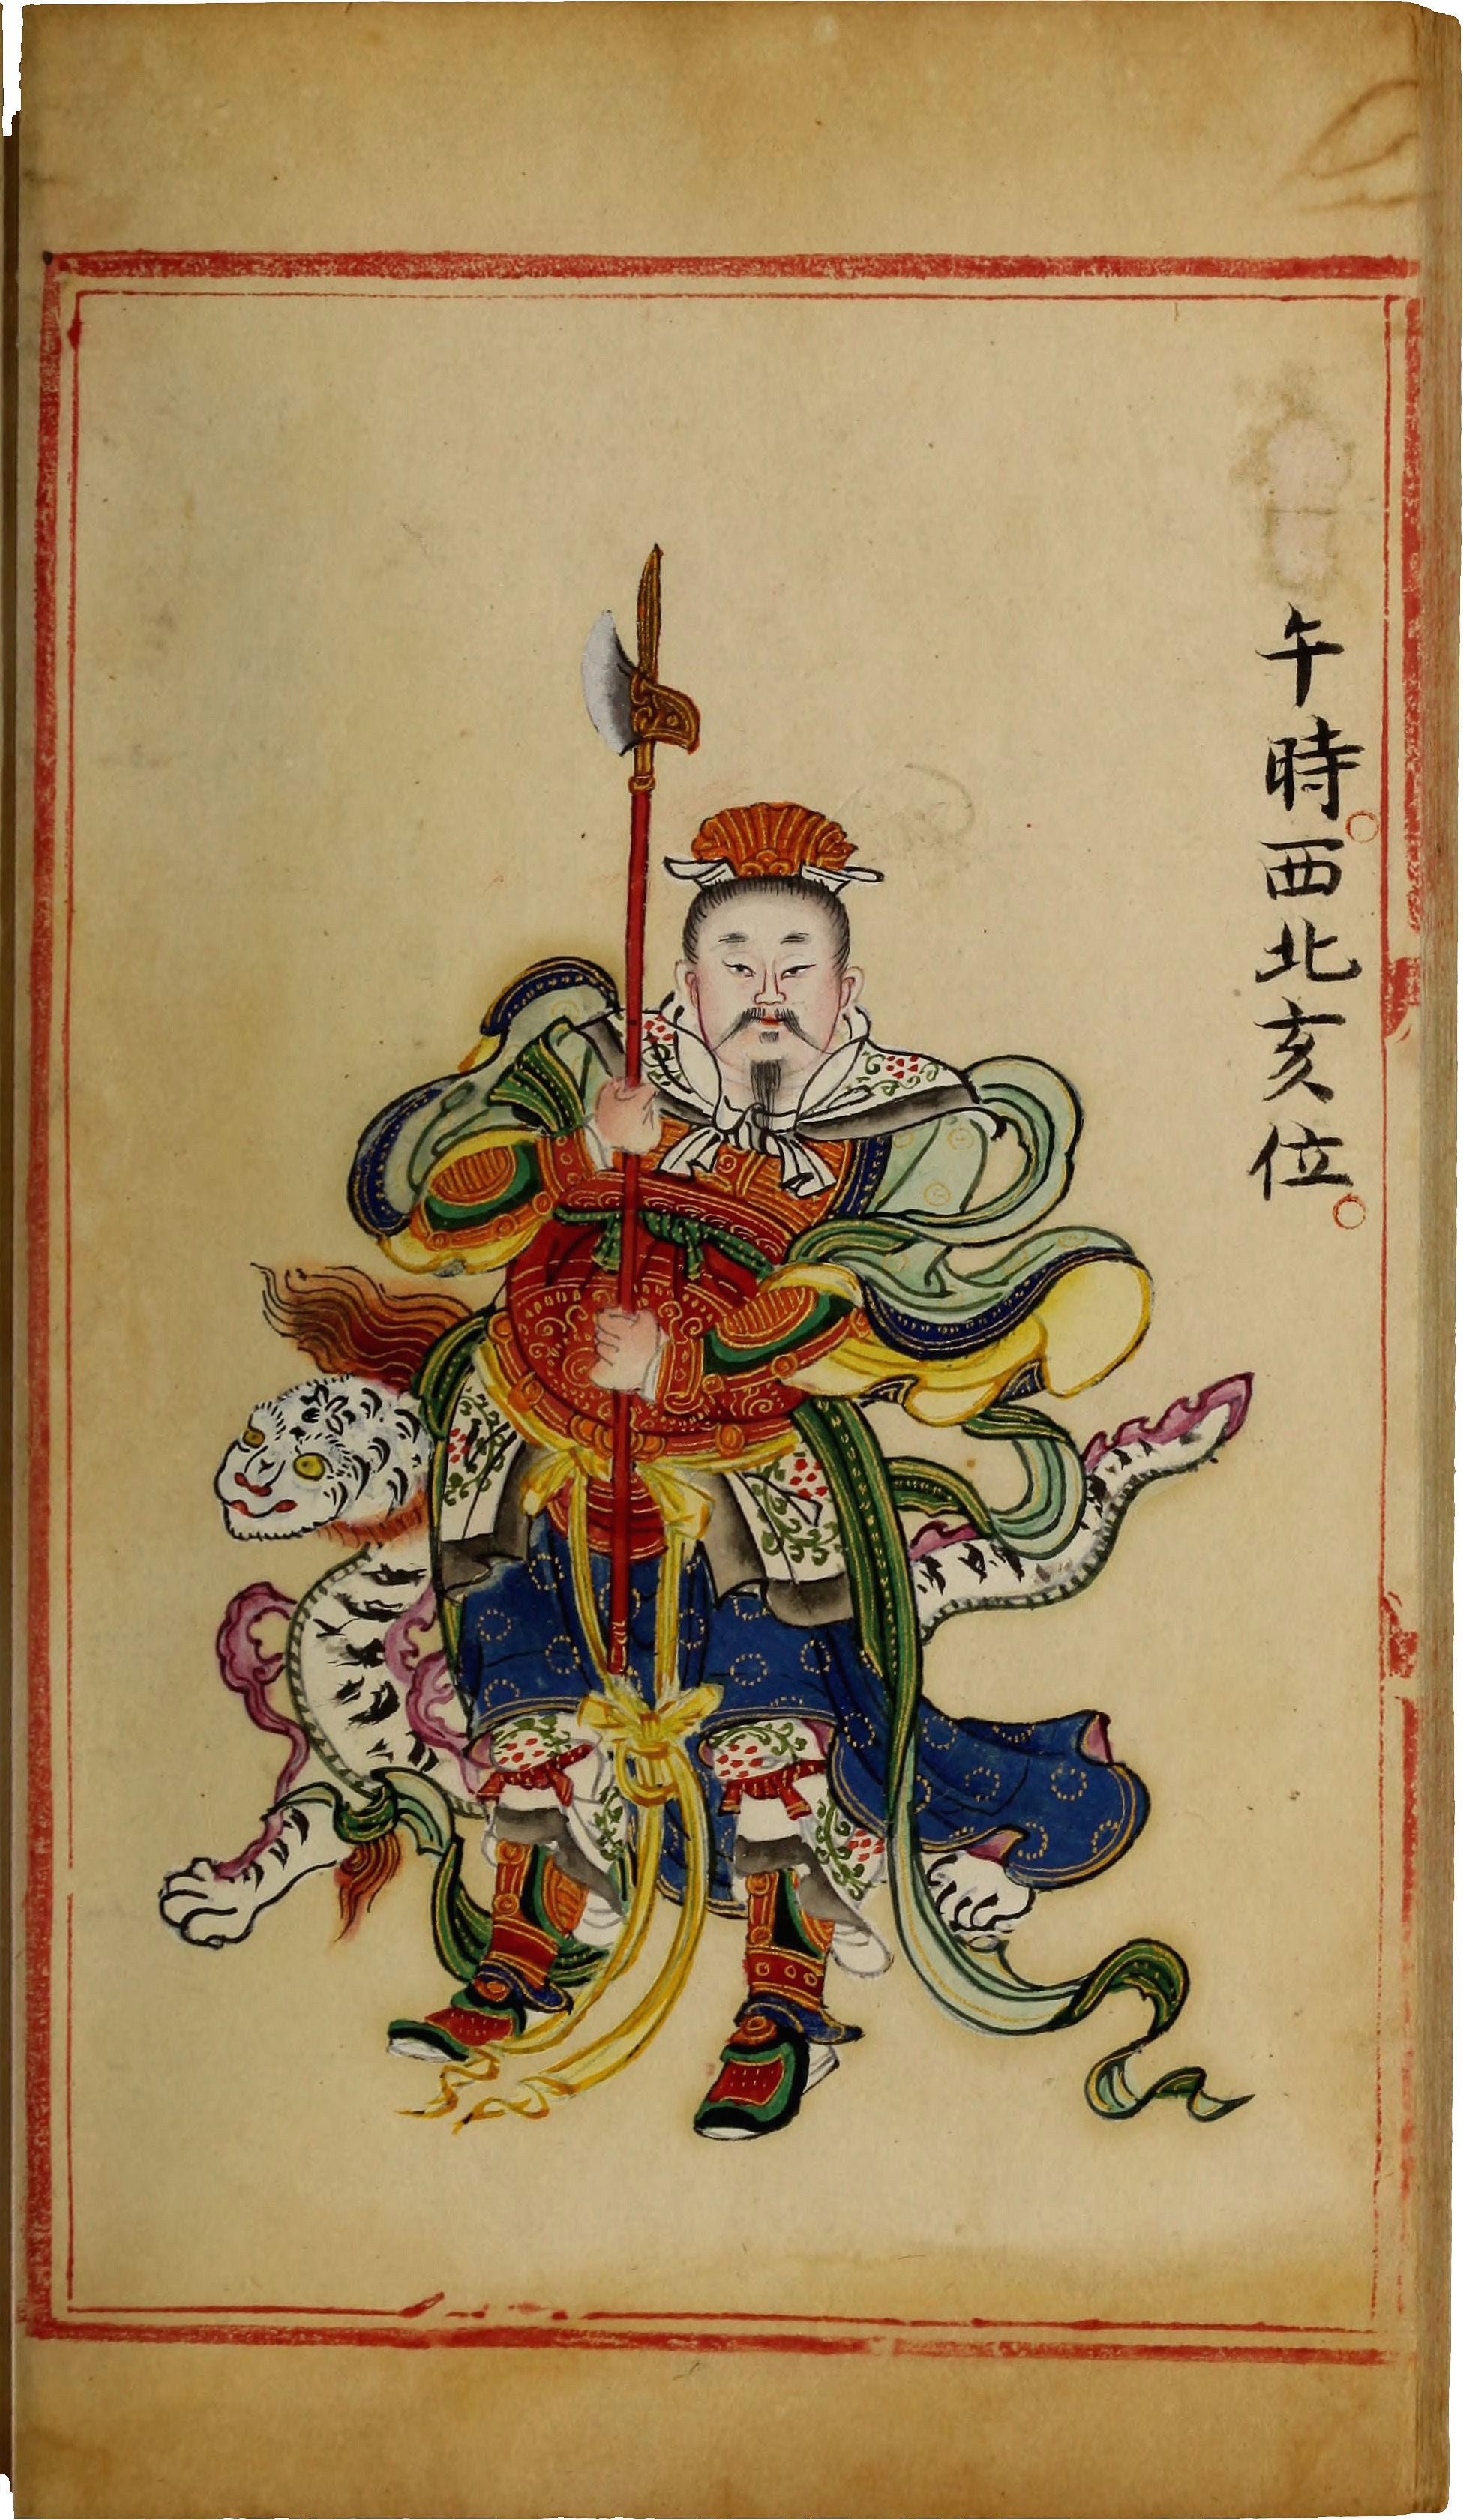 午時西北亥位